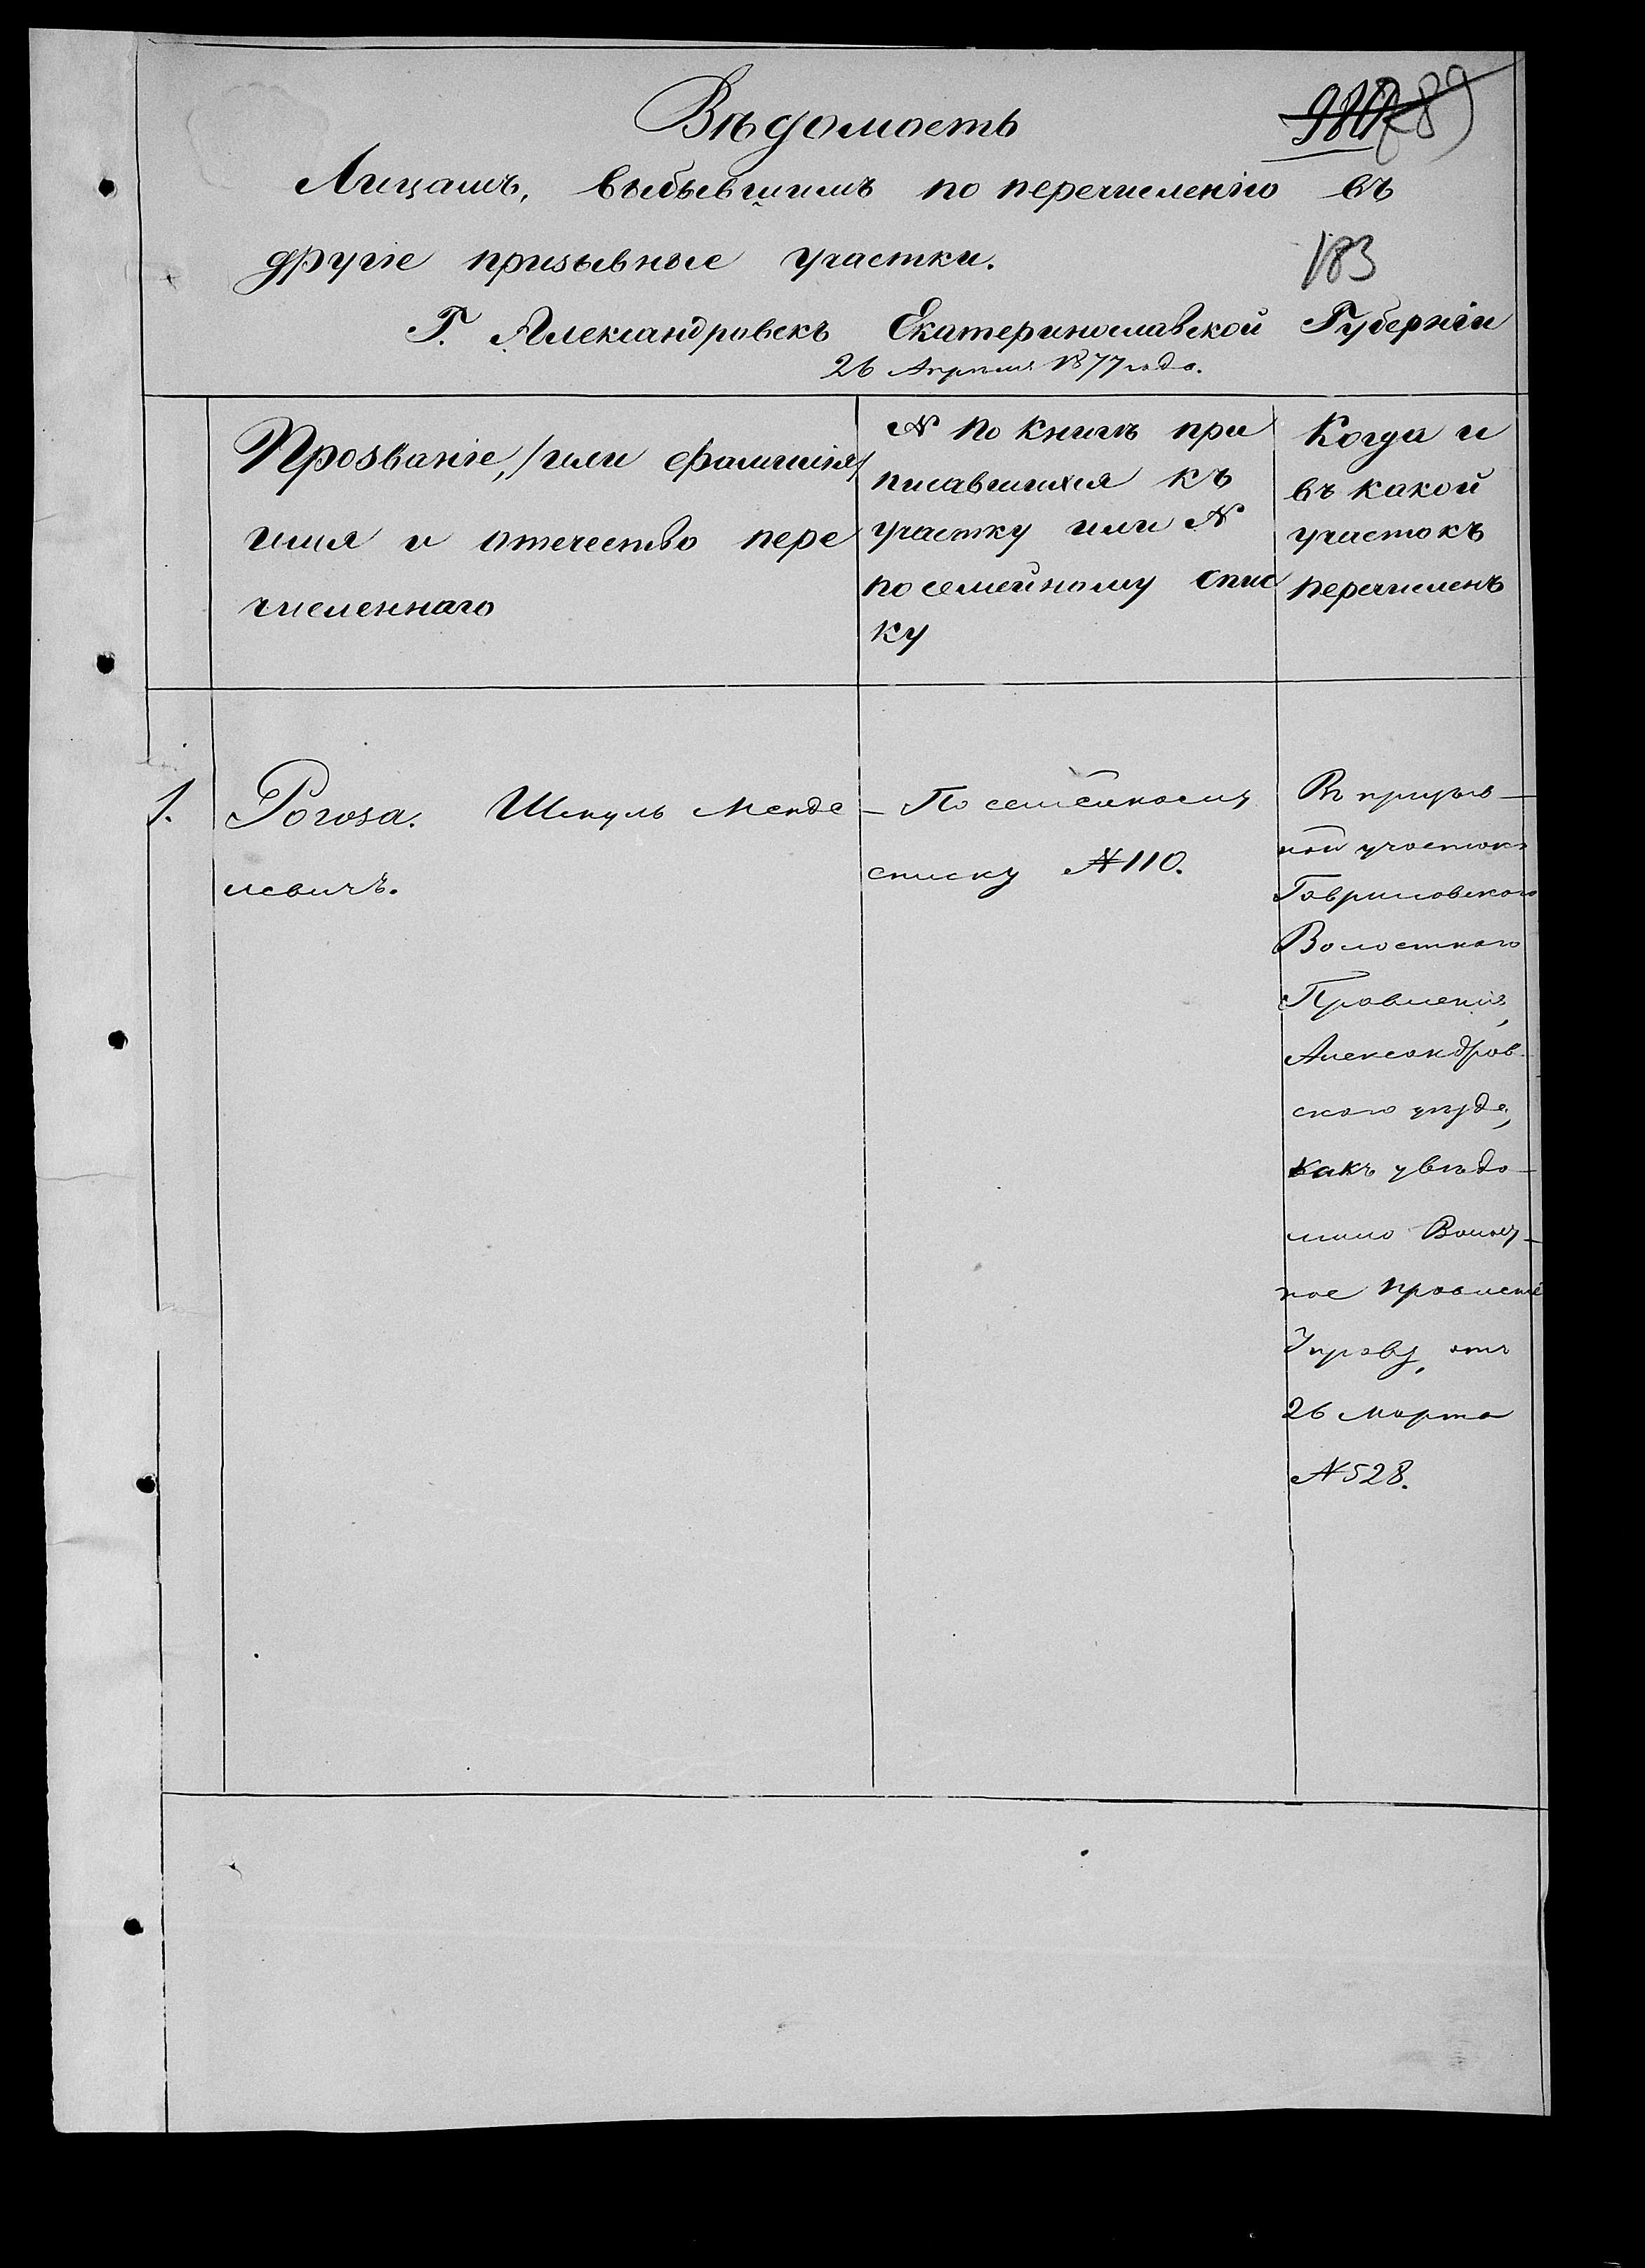 Вѣдомость
89
Лицамъ, выбывшимъ по перечисленію въ
другіе призывные участки.
183
Г. Александровскъ Екатеринославской Губерніи
26 Апрѣля 1877 года.
Прозваніе, /или фамилія/
имя и отечество пере
численнаго
№ по книгѣ при
писавшихся къ
участку или №
по семейному спис
ку
Когда и
въ какой
участокъ
перечисленъ
1. Рогоза. Шмуль Менде
левичъ.
— По семейному
списку № 110.
Въ призыв—
ной участокъ
Гавриловскаго
Волостнаго
Правленія,
Александров-
скаго уѣзда,
какъ увѣдо—
мило Волост—
ное Правленіе
Управу, отъ
26 Марта
№ 528.